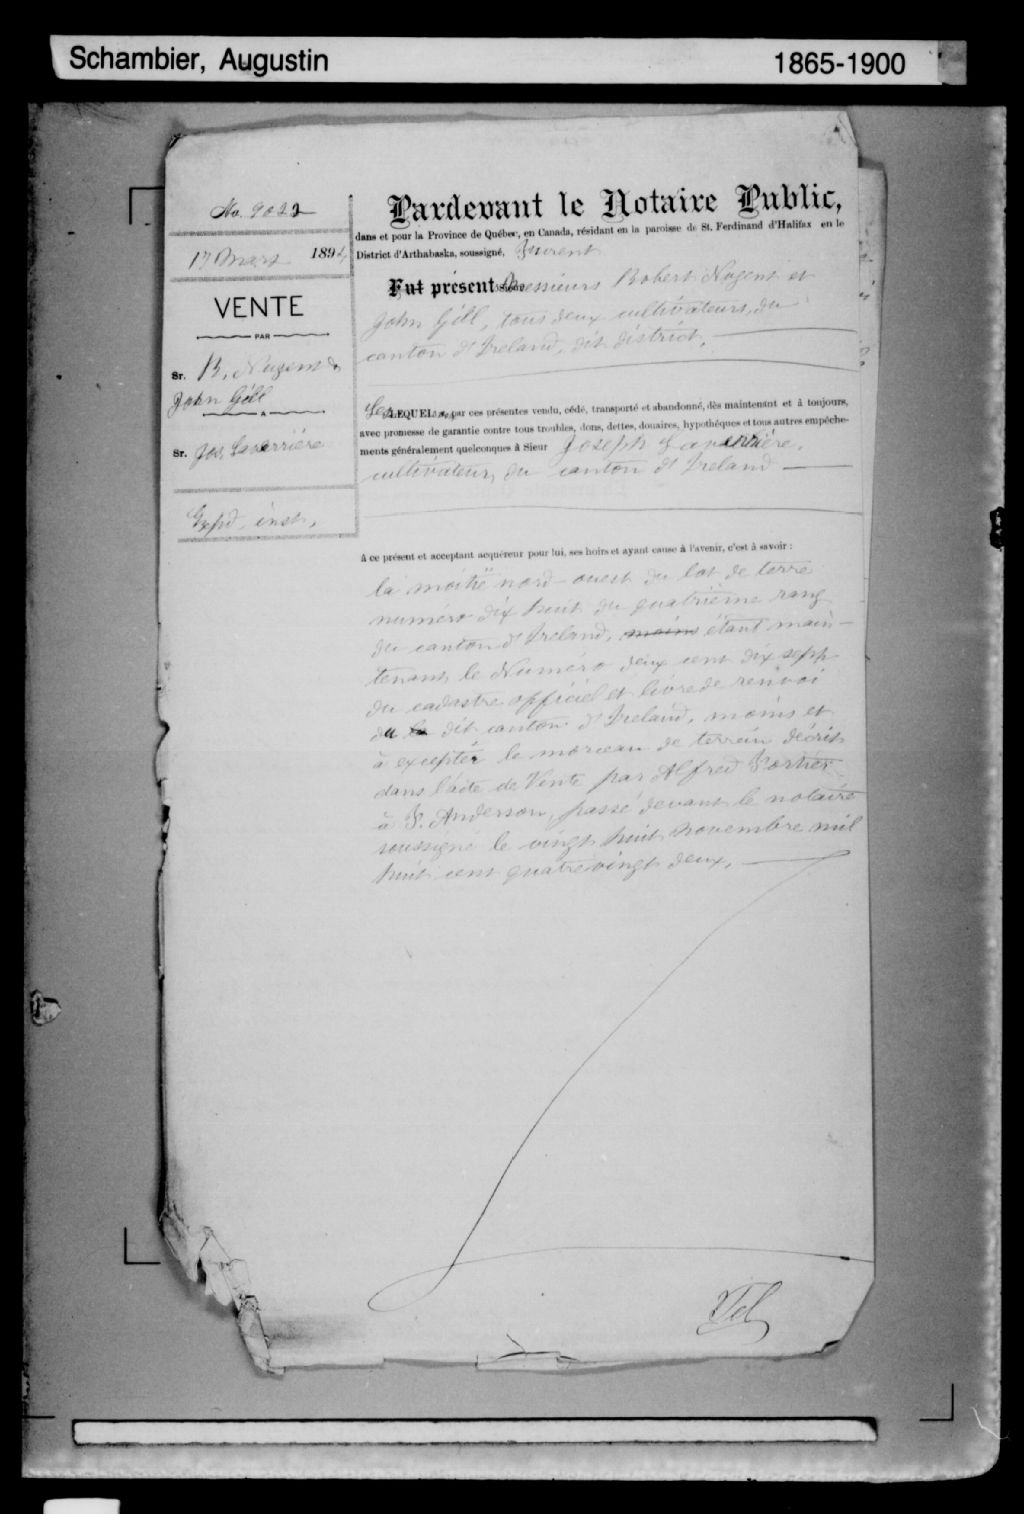 Schambier, Augustin
1865-1900
No. 9022
17 Mars 1894
VENTE
PAR
Sr. R. Nugent &
John Gill
A
Sr. Jos. Laverrière
Expd. inst.
Pardevant le Notaire Public,
dans et pour la Province de Québec, en Canada, résidant en la paroisse de St. Ferdinand d'Halifax en le
District d'Arthabaska, soussigné, Furent
Fut présent Messieurs Robert Nugent et
John Gill, tous deux cultivateurs, du
canton d'Ireland, dit district,
Les LEQUEL par ces présentes vendu, cédé, transporté et abandonné, dès maintenant et à toujours,
avec promesse de garantie contre tous troubles, dons, dettes, douaires, hypothéques et tous autres empêche-
ments généralement quelconques à Sieur Joseph Laverrière,
cultivateur, du canton d'Ireland
à ce présent et acceptant acquéreur pour lui, ses hoirs et ayant cause à l'avenir, c'est à savoir :
la moitié nord-ouest du lot de terre
numéro dix huit du quatrième rang
du canton d'Ireland, moins étant main-
tenant le Numéro deux cent dix sept
du cadastre officiel et livre de renvoi
du dit canton d'Ireland, moins et
à excepter le morceau de terrain décrit
dans l'acte de Vente par Alfred Fortier
à S. Anderson, passé devant le notaire
soussigné le vingt huit novembre mil
huit cent quatrevingt deux,